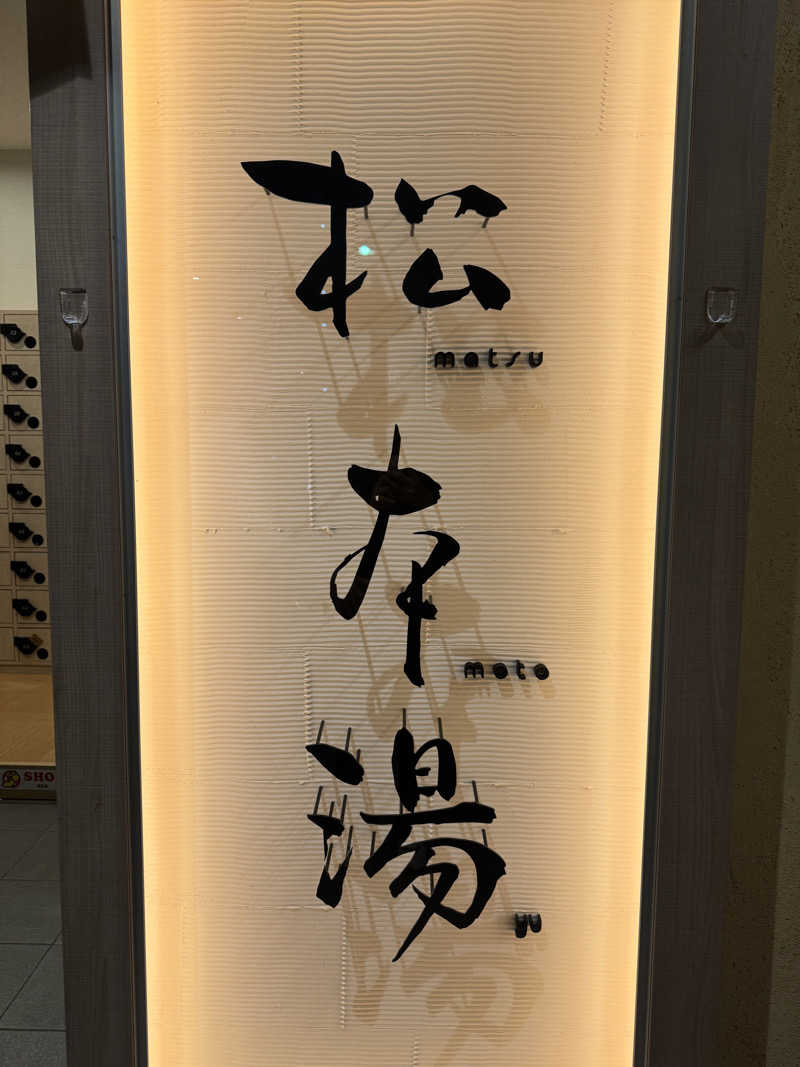 松
matsu
本
moto
湯
yu
SHO